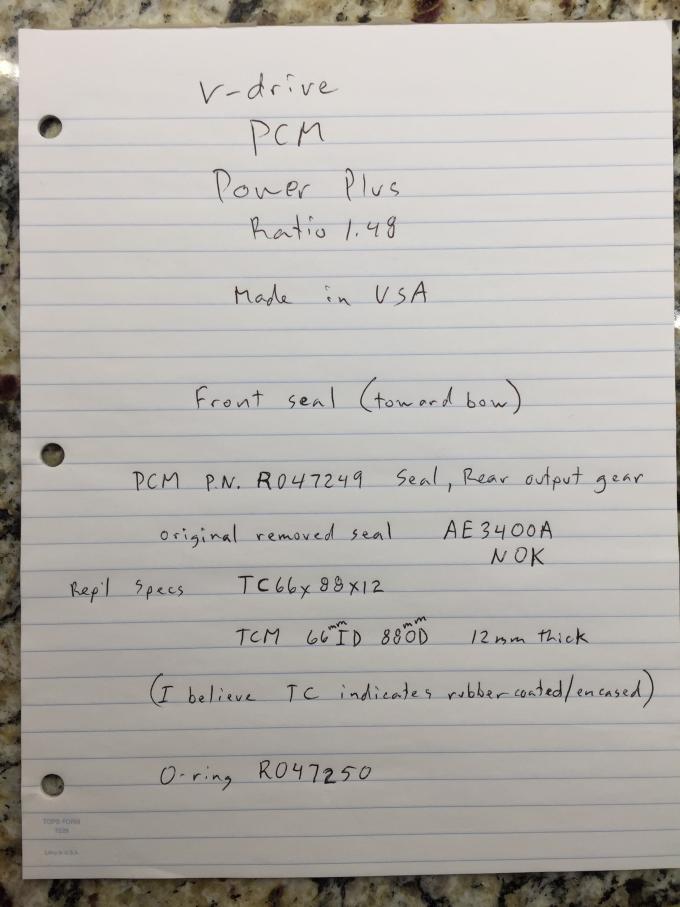 V-drive
PCM
Power Plus
Ratio 1.48
Made in USA
Front seal (toward bow)
PCM P.N. R047249 Seal, Rear output gear
original removed seal AE3400A
NOK
Rep'l Specs TC66x88x12
TCM 66mm ID 88mm OD 12mm thick
(I believe TC indicates rubber coated/encased)
O-ring R047250
TOPS FORM